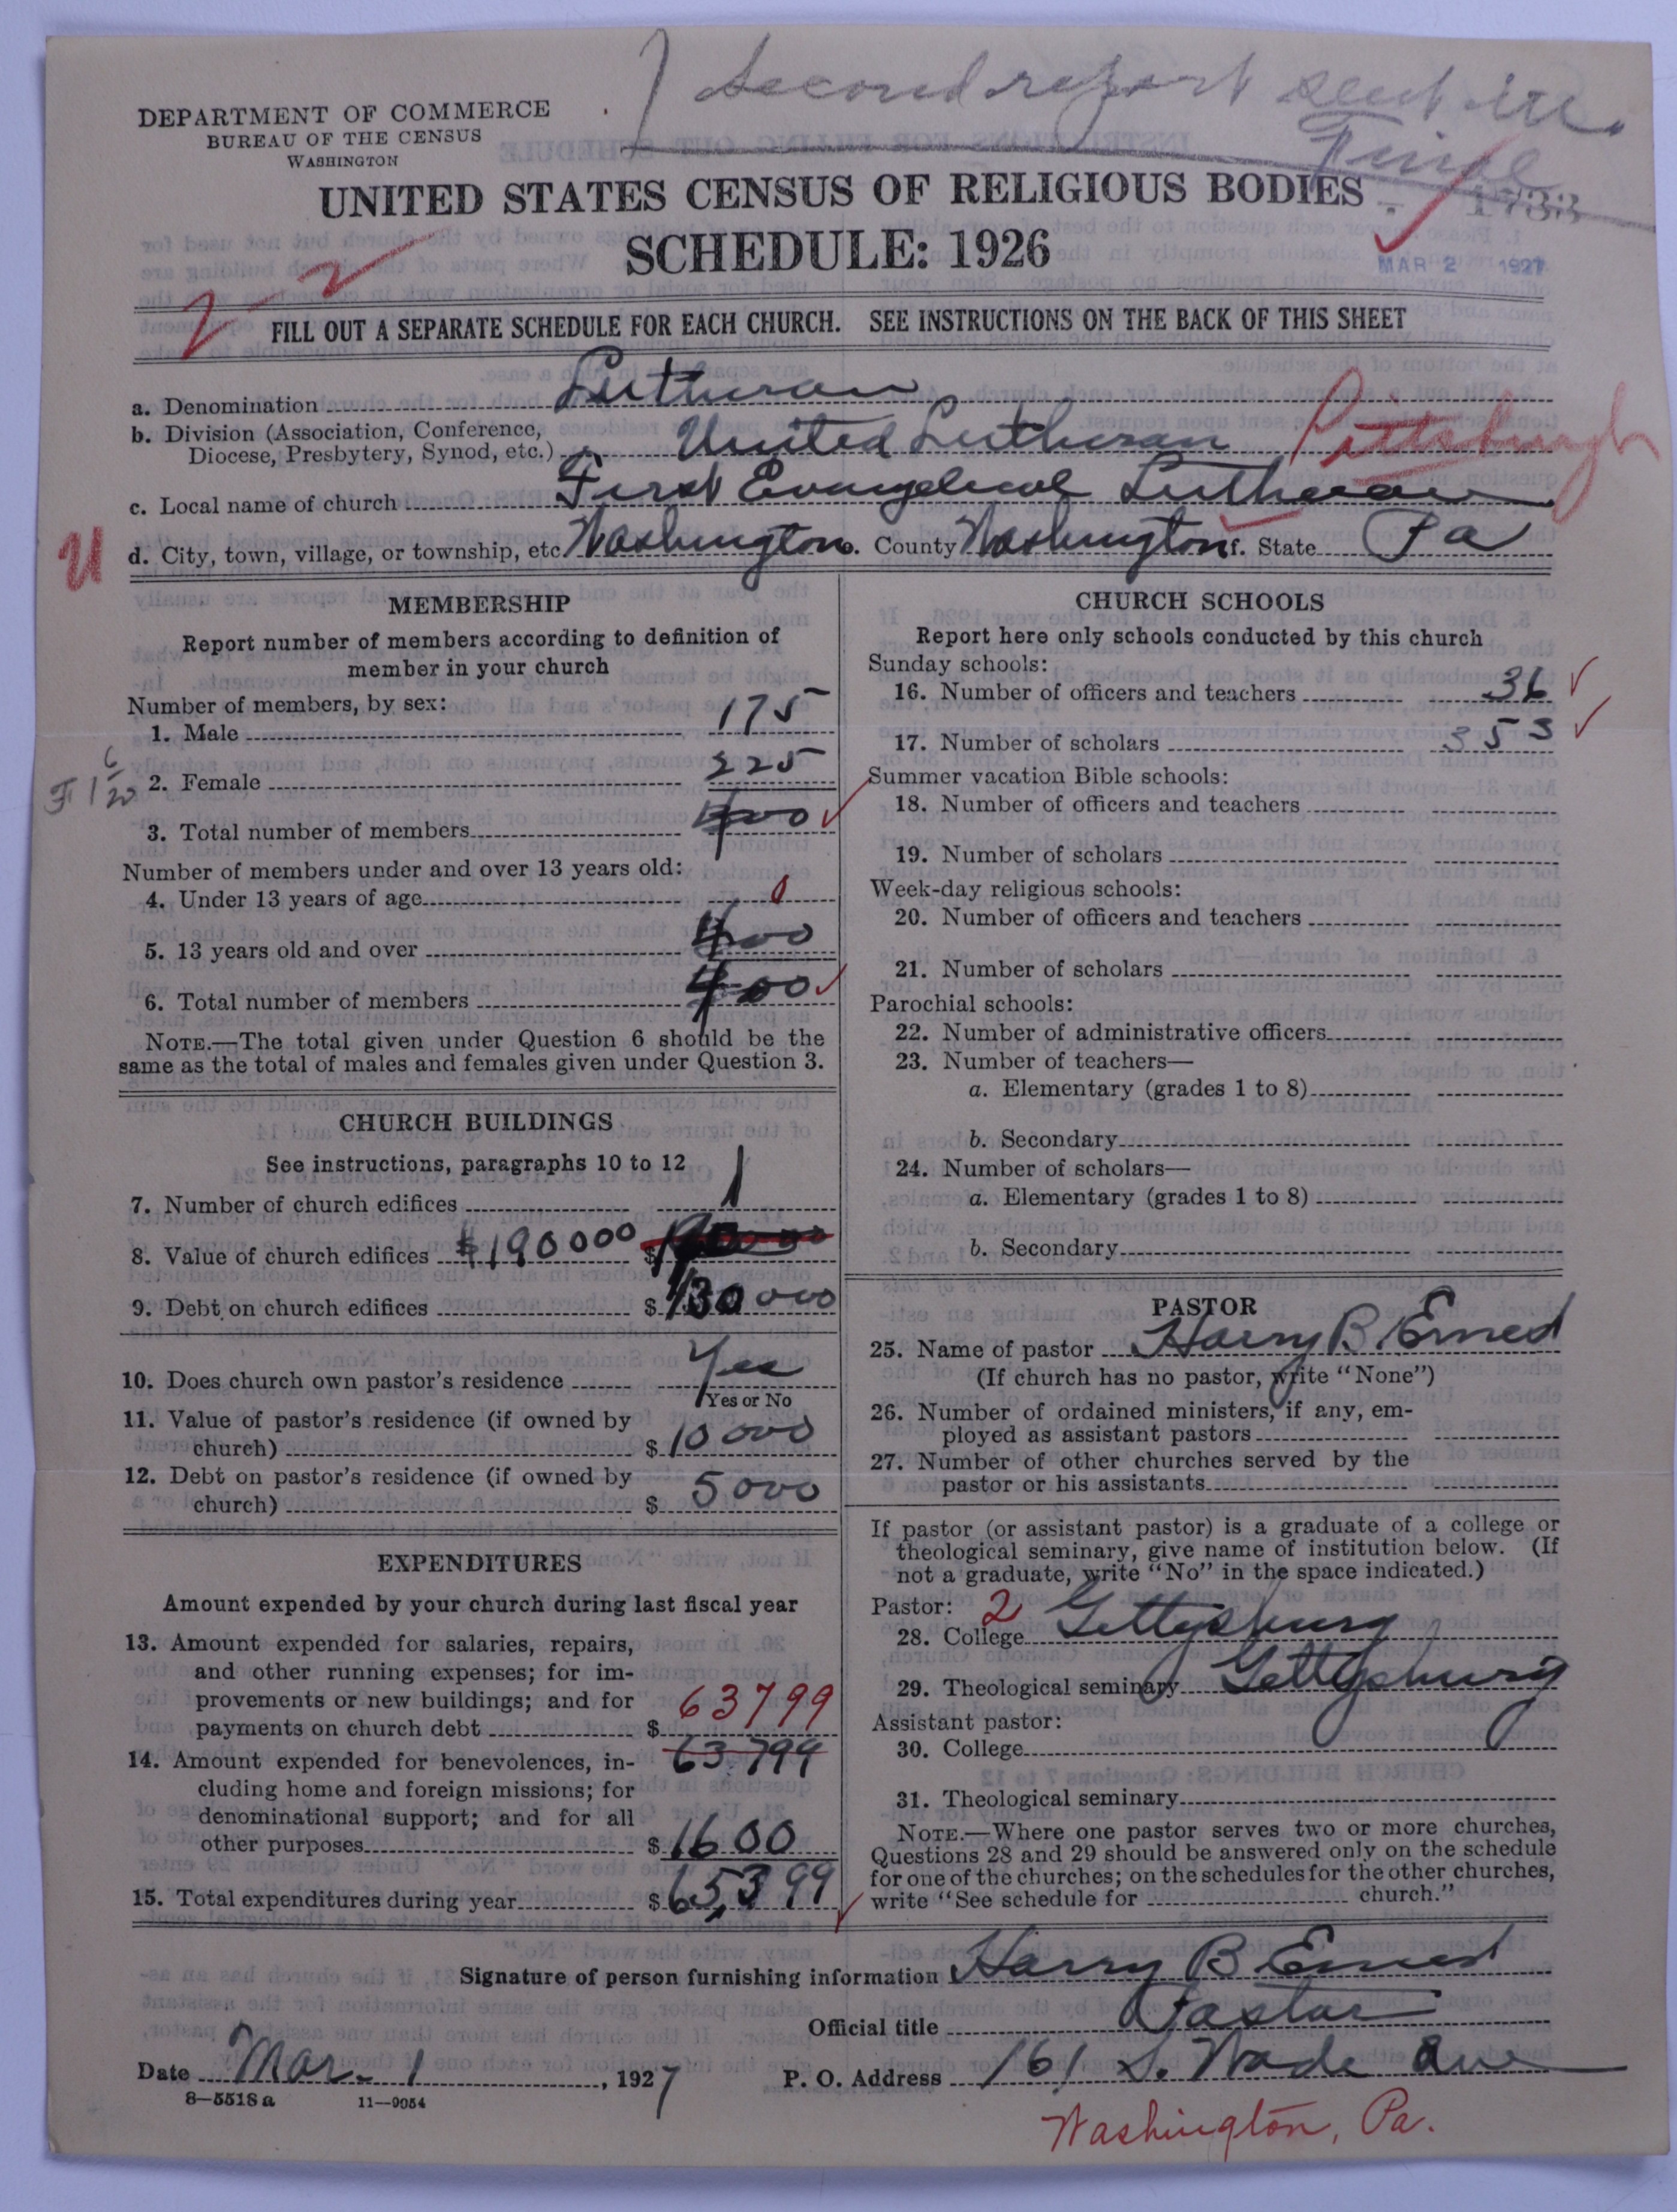 Second report sent in.
Final
DEPARTMENT OF COMMERCE
BUREAU OF THE CENSUS
WASHINGTON
UNITED STATES CENSUS OF RELIGIOUS BODIES
1733
SCHEDULE: 1926
MAR 2 1927
2-2
FILL OUT A SEPARATE SCHEDULE FOR EACH CHURCH. SEE INSTRUCTIONS ON THE BACK OF THIS SHEET
a. Denomination Lutheran
b. Division (Association, Conference,
Diocese, Presbytery, Synod, etc.) United Lutheran Pittsburgh
c. Local name of church First Evangelical Lutheran
U
d. City, town, village, or township, etc Washington e. County Washington f. State Pa
MEMBERSHIP
Report number of members according to definition of
member in your church
Number of members, by sex:
1. Male 175
2. Female 225
3. Total number of members 400
Number of members under and over 13 years old:
4. Under 13 years of age 0
5. 13 years old and over 400
6. Total number of members 400
NOTE.—The total given under Question 6 should be the
same as the total of males and females given under Question 3.
CHURCH BUILDINGS
See instructions, paragraphs 10 to 12
7. Number of church edifices 1
8. Value of church edifices $190000 $
9. Debt on church edifices $130000
10. Does church own pastor's residence Yes
Yes or No
11. Value of pastor's residence (if owned by
church) $10000
12. Debt on pastor's residence (if owned by
church) $ 5000
EXPENDITURES
Amount expended by your church during last fiscal year
13. Amount expended for salaries, repairs,
and other running expenses; for im-
provements or new buildings; and for
payments on church debt $ 63799
14. Amount expended for benevolences, in- 63799
cluding home and foreign missions; for
denominational support; and for all
other purposes $1600
15. Total expenditures during year $65,399
CHURCH SCHOOLS
Report here only schools conducted by this church
Sunday schools:
16. Number of officers and teachers 36
17. Number of scholars 353
Summer vacation Bible schools:
18. Number of officers and teachers
19. Number of scholars
Week-day religious schools:
20. Number of officers and teachers
21. Number of scholars
Parochial schools:
22. Number of administrative officers
23. Number of teachers—
a. Elementary (grades 1 to 8)
b. Secondary
24. Number of scholars—
a. Elementary (grades 1 to 8)
b. Secondary
PASTOR
25. Name of pastor Harry B. Ernest
(If church has no pastor, write "None")
26. Number of ordained ministers, if any, em-
ployed as assistant pastors
27. Number of other churches served by the
pastor or his assistants
If pastor (or assistant pastor) is a graduate of a college or
theological seminary, give name of institution below. (If
not a graduate, write "No" in the space indicated.)
Pastor: 2
28. College Gettysburg
29. Theological seminary Gettysburg
Assistant pastor:
30. College
31. Theological seminary
NOTE.—Where one pastor serves two or more churches,
Questions 28 and 29 should be answered only on the schedule
for one of the churches; on the schedules for the other churches,
write "See schedule for church."
Signature of person furnishing information Harry B Ernest
Official title Pastor
Date Mar. 1, 1927 P. O. Address 161 S. Wade Ave
8—5518a 11—9054
Washington, Pa.